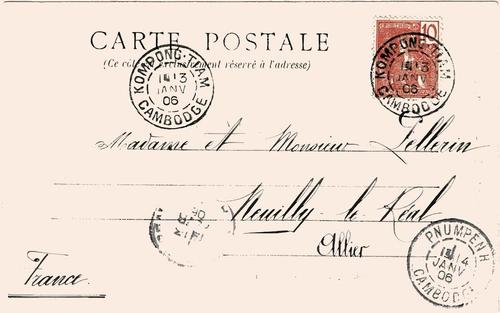 CARTE POSTALE
(Ce côté exclusivement réservé à l'adresse)
10
KOMPONG-TIAM
13
JANV
06
CAMBODGE
KOMPONG-TIAM
13
JANV
06
CAMBODGE
Madame et Monsieur Pellerin
Neuilly le Réal
Allier
France.
PNUMPENH
14
JANV
06
CAMBODGE